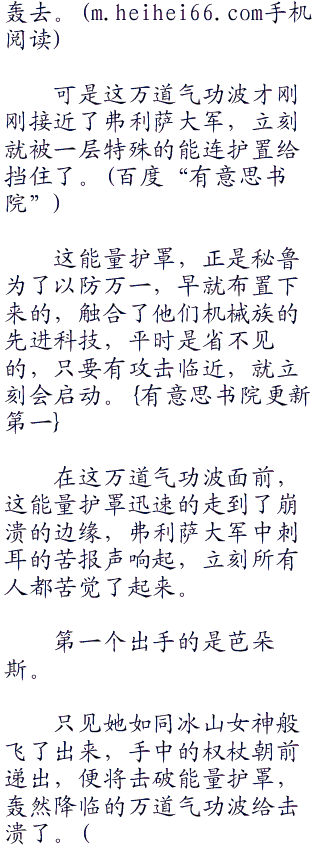 轰去。(m.heihei66.com手机
阅读)
可是这万道气功波才刚
刚接近了弗利萨大军，立刻
就被一层特殊的能连护置给
挡住了。(百度“有意思书
院”)
这能量护罩，正是秘鲁
为了以防万一，早就布置下
来的，触合了他们机械族的
先进科技，平时是省不见
的，只要有攻击临近，就立
刻会启动。{有意思书院更新
第一}
在这万道气功波面前，
这能量护罩迅速的走到了崩
溃的边缘，弗利萨大军中刺
耳的苦报声响起，立刻所有
人都苦觉了起来。
第一个出手的是芭朵
斯。
只见她如同冰山女神般
飞了出来，手中的权杖朝前
递出，便将击破能量护罩，
轰然降临的万道气功波给击
溃了。(